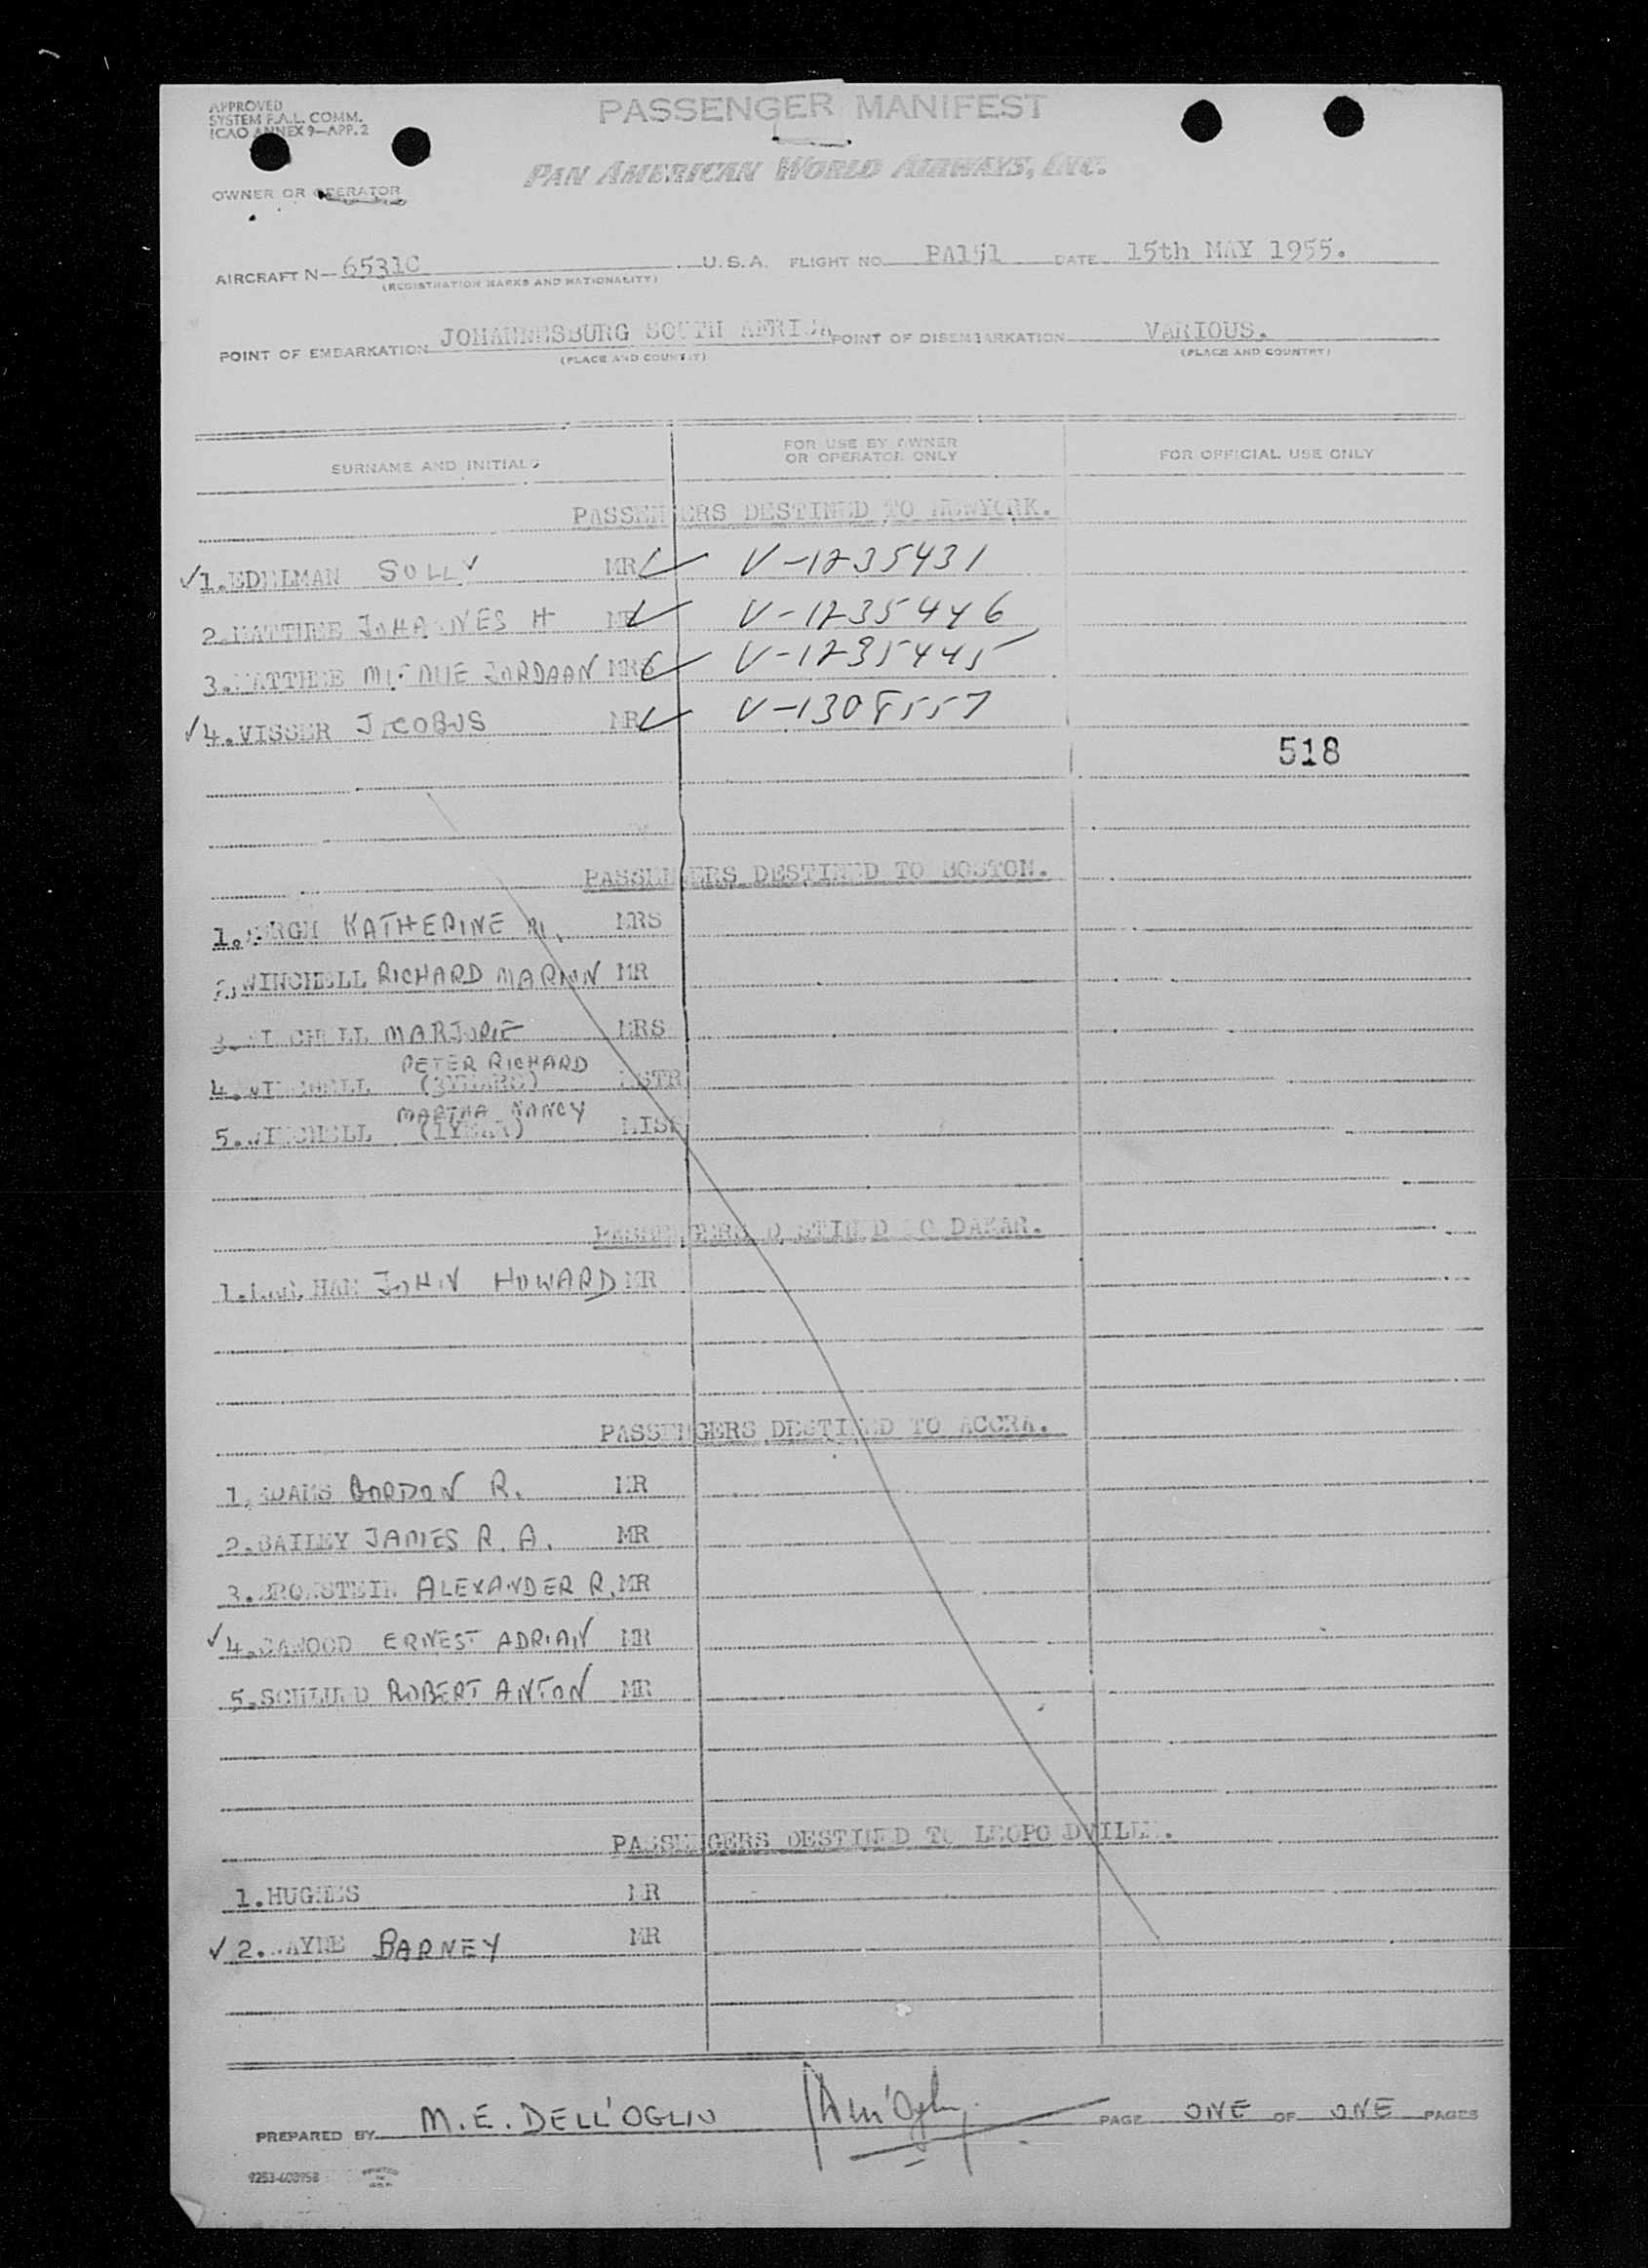 APPROVED
SYSTEM F.A.L. COMM.
ICAO ANNEX 9—APP. 2
PASSENGER MANIFEST
PAN AMERICAN WORLD AIRWAYS, INC.
OWNER OR OPERATOR
AIRCRAFT N— 6531C U.S.A. FLIGHT NO. PA151 DATE 15th MAY 1955.
(REGISTRATION MARKS AND NATIONALITY)
POINT OF EMBARKATION JOHANNESBURG SOUTH AFRICA POINT OF DISEMBARKATION VARIOUS.
(PLACE AND COUNTRY) (PLACE AND COUNTRY)
SURNAME AND INITIALS FOR USE BY OWNER OR OPERATOR ONLY FOR OFFICIAL USE ONLY
PASSENGERS DESTINED TO NEWYORK.
✓ 1. EDELMAN SOLLY MR ✓ V-1235431
2. MATTHEE JOHANNES H MR ✓ V-1235446
3. MATTHEE JORDAAN MRS ✓ V-1235445
✓ 4. VISSER JACOBUS MR ✓ V-1308557
518
PASSENGERS DESTINED TO BOSTON.
1. KATHERINE MRS
2. WINCHELL RICHARD MR
3. WINCHELL MARJORIE MRS
PETER RICHARD
4. WINCHELL (3YEARS) MSTR
MARTHA NANCY
5. WINCHELL (1YEAR) MISS
PASSENGERS DESTINED TO DAKAR.
1. JOHN HOWARD MR
PASSENGERS DESTINED TO ACCRA.
1. ADAMS GORDON R. MR
2. BAILEY JAMES R. A. MR
3. BRONSTEIN ALEXANDER R. MR
✓ 4. ERNEST ADRIAN MR
5. SCHLUND ROBERT ANTON MR
PASSENGERS DESTINED TO LEOPOLDVILLE.
1. HUGHES MR
✓ 2. WAYNE BARNEY MR
PREPARED BY M. E. DELL'OGLIO PAGE ONE OF ONE PAGES
9253-600958 PRINTED IN U.S.A.